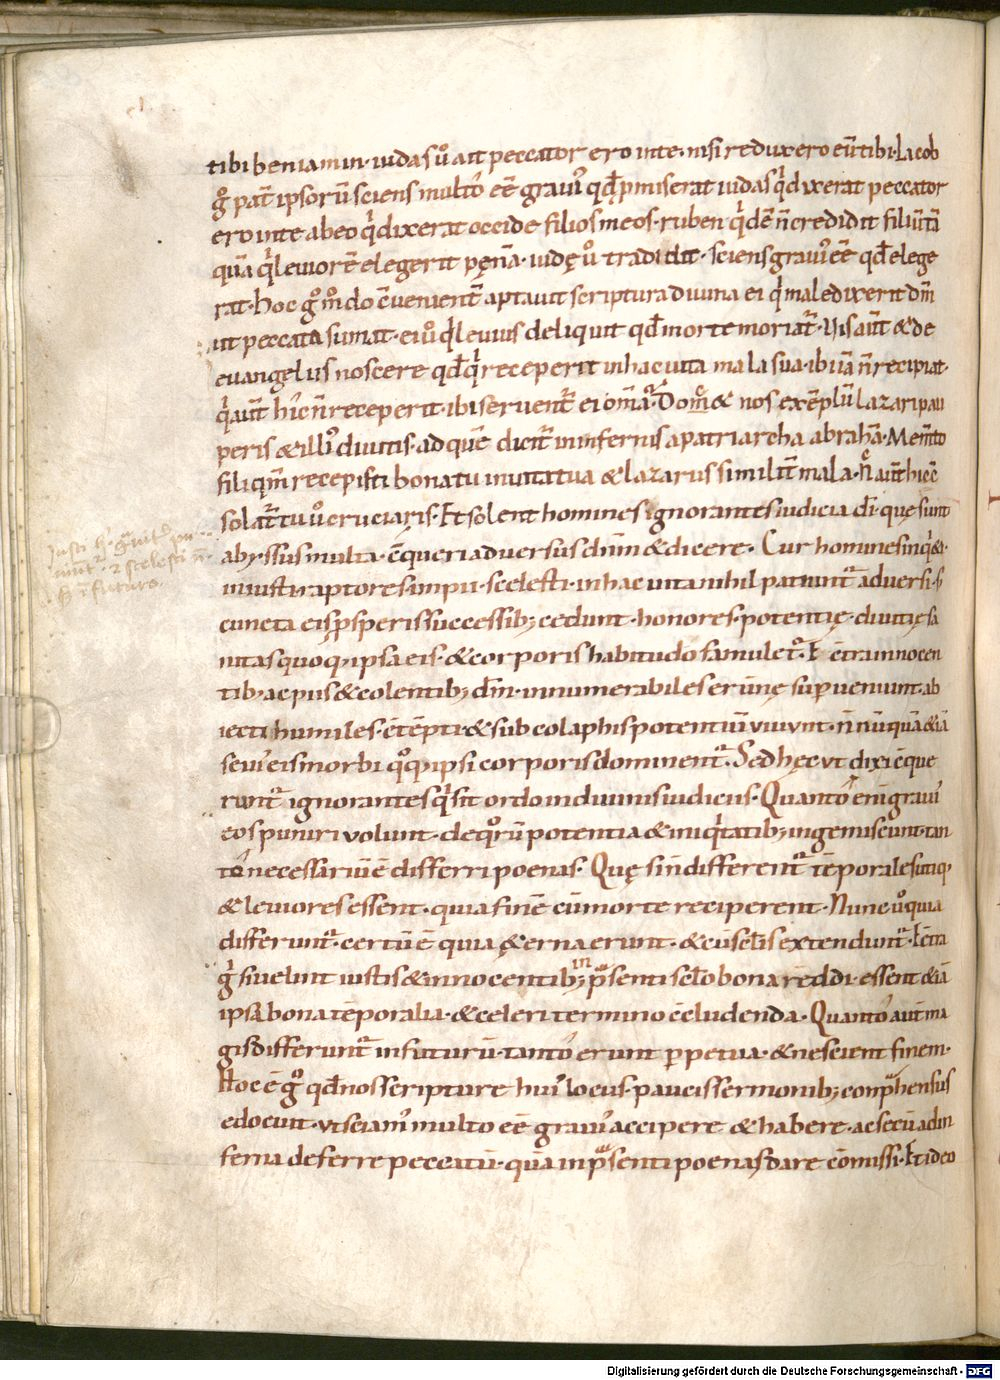 tibi beniamin. iudas ů ait peccator ero in te. nisi reduxero eū tibi. Iacob
g̊ pat̄ ipsorū sciens multo eē grauiꝰ qd ꝓmiserat iudas qͥ dixerat peccator
ero in te ab eo qͥ dixerat occide filios meos. ruben qͥdē n̄ credidit filiū tā
quā qͥ leuiorē elegerit pęnā. iudę ů tradidit. sciens grauiꝰ eē qd elege
rat. Hoc g̊ m̊do cōuenient̄ aptauit scriptura diuina ei qͥ maledixerit dm̄
ut peccata sumat. ei ů qͥ leuius deliquit qd morte moriat᷑. Uis aut̄ & de
euangeliis noscere qd qͥ receperit in hac uita mala sua. ibi iā n̄ recipiat.
qͥ aut̄ hic n̄ receperit. ibi seruent᷑ ei om̄a. Dom̄& nos exēplū lazari pau
peris & illiꝰ diuitis. ad quē dicit᷑ in infernis a patriarcha abrahā. Mem̄to
fili qm̄ recepisti bona tu in uita tua & lazarus similit̄ mala. n̄c aut̄ hic cō
solat᷑ tu ů cruciaris. Et solent homines ignorantes iudicia dī. quę sunt
abyssus multa. cōqueri aduersus dnm & dicere. Cur homines inqͥ &
iniusti raptores impii. scelesti. in hac uita nihil patiunt᷑ aduersi. s
cuncta eis ꝓsperis successibꝫ cedunt. honores. potentię. diuitię sa
nitas quoqꝫ ipsa eis. & corporis habitudo famulet᷑. Et ēcͣ innocen
tibꝫ ac piis & colentibꝫ dm̄. innumerabiles erūnę superueniunt. ab
iecti humiles. cōtēpti & sub colaphis potentiū uiuunt. n̄nūquā & iā
seuiꝰ eis morbi qͦqꝫ ipsi corporis dominent᷑. Sed hęc ut dixi cōque
runt᷑ ignorantes qͥ sit ordo in diuinis iudiciis. Quanto eni grauiꝰ
eos puniri uolunt. de qͦrū potentia & iniqͥtatibꝫ ingemiscunt. tan
to necessariū ē differri poenas. Quę si n̄ different᷑ tēporales utiqꝫ
& leuiores essent. quia finē cū morte reciperent. Nunc ů quia
differunt᷑. certū ē quia ęterna erunt. & cū sclis extendunt᷑. Ecͣ
g̊ si uelint iustis & innocentibꝫ in p̄senti sclo bona reddi. essent & iā
ipsa bona tēporalia. & celeri termino c̄cludenda. Quanto aut̄ ma
gis differunt᷑ in futurū. tanto erunt ꝑpetua. & nescient finem.
Hoc ē g̊ qd nos scripturę huiꝰ locus. paucis sermonibꝫ conp̄hensus
edocuit. ut sciamꝰ multo eē grauiꝰ accipere & habere. ac secū ad in
ferna deferre peccatū. quā in p̄senti poenas dare cōmissi. Et ideo